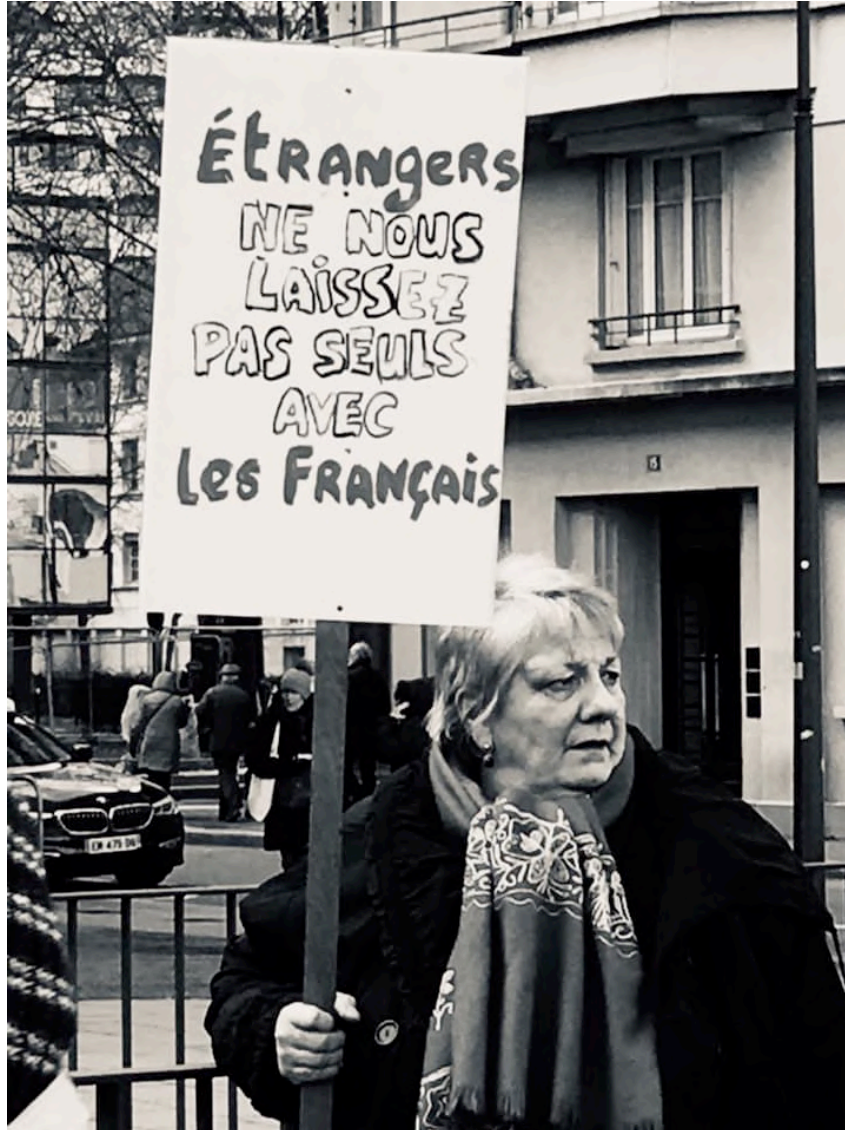 Étrangers
NE NOUS
LAISSEZ
PAS SEULS
AVEC
Les Français